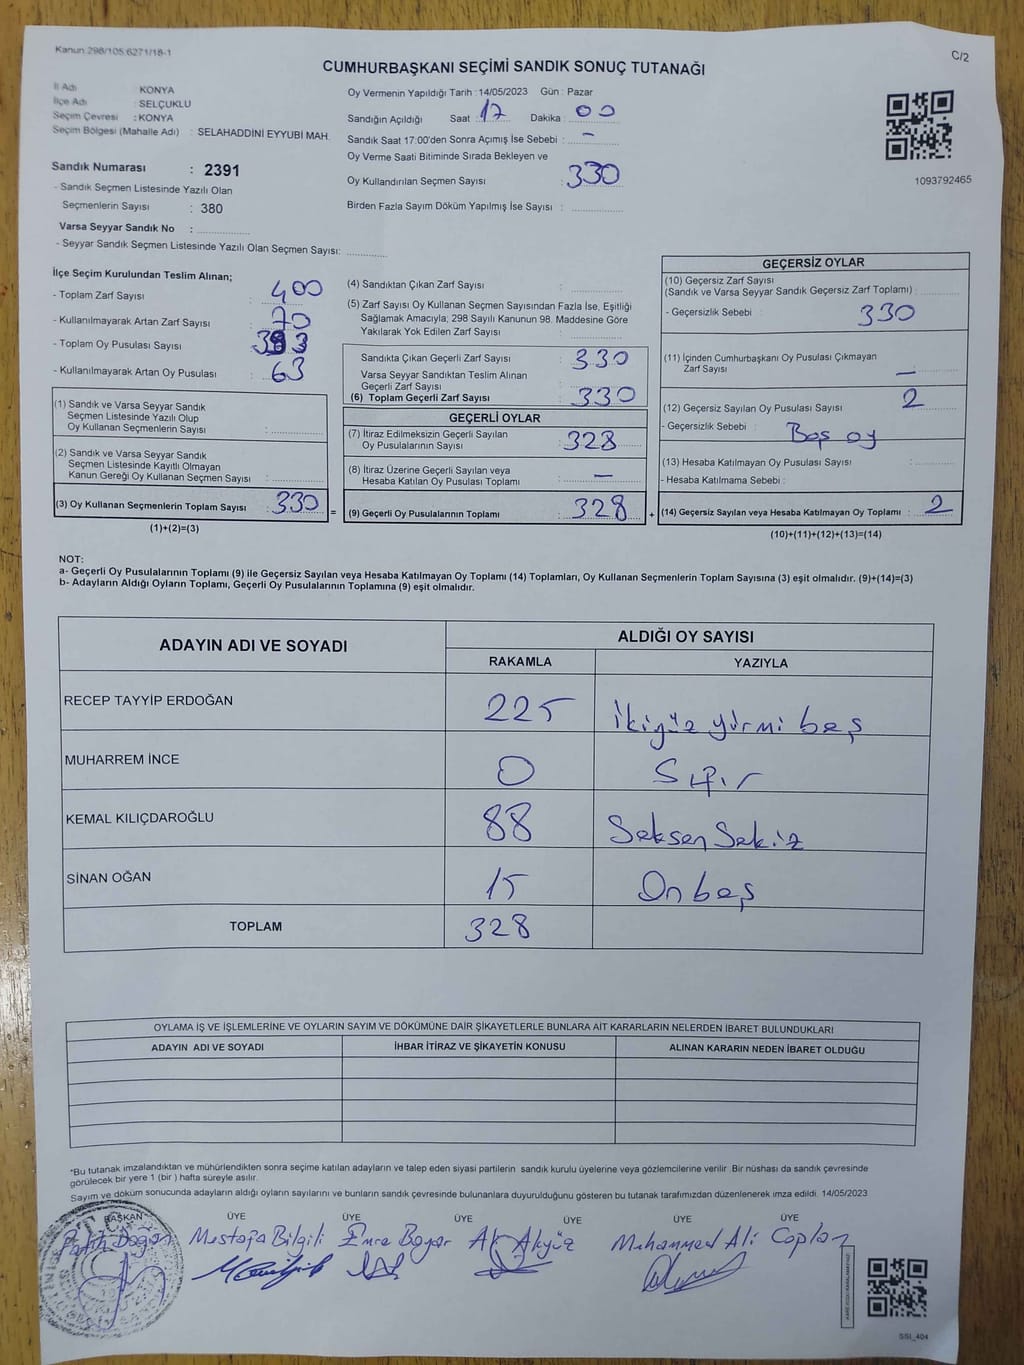 Kanun:298/105,6271/18-1
C/2
CUMHURBAŞKANI SEÇİMİ SANDIK SONUÇ TUTANAĞI
İl Adı : KONYA
İlçe Adı : SELÇUKLU
Seçim Çevresi : KONYA
Seçim Bölgesi (Mahalle Adı) : SELAHADDİNİ EYYUBİ MAH.
Sandık Numarası : 2391
- Sandık Seçmen Listesinde Yazılı Olan
Seçmenlerin Sayısı : 380
Varsa Seyyar Sandık No :
- Seyyar Sandık Seçmen Listesinde Yazılı Olan Seçmen Sayısı:
Oy Vermenin Yapıldığı Tarih : 14/05/2023 Gün : Pazar
Sandığın Açıldığı Saat : 17 Dakika : 00
Sandık Saat 17:00'den Sonra Açımış İse Sebebi : -
Oy Verme Saati Bitiminde Sırada Bekleyen ve
Oy Kullandırılan Seçmen Sayısı : 330
Birden Fazla Sayım Döküm Yapılmış İse Sayısı :
1093792465
İlçe Seçim Kurulundan Teslim Alınan;
- Toplam Zarf Sayısı : 400
- Kullanılmayarak Artan Zarf Sayısı : 70
- Toplam Oy Pusulası Sayısı : 393
- Kullanılmayarak Artan Oy Pusulası : 63
(1) Sandık ve Varsa Seyyar Sandık
Seçmen Listesinde Yazılı Olup
Oy Kullanan Seçmenlerin Sayısı :
(2) Sandık ve Varsa Seyyar Sandık
Seçmen Listesinde Kayıtlı Olmayan
Kanun Gereği Oy Kullanan Seçmen Sayısı :
(3) Oy Kullanan Seçmenlerin Toplam Sayısı : 330
(1)+(2)=(3)
=
(4) Sandıktan Çıkan Zarf Sayısı :
(5) Zarf Sayısı Oy Kullanan Seçmen Sayısından Fazla İse, Eşitliği
Sağlamak Amacıyla; 298 Sayılı Kanunun 98. Maddesine Göre
Yakılarak Yok Edilen Zarf Sayısı :
Sandıkta Çıkan Geçerli Zarf Sayısı : 330
Varsa Seyyar Sandıktan Teslim Alınan
Geçerli Zarf Sayısı :
(6) Toplam Geçerli Zarf Sayısı : 330
GEÇERLİ OYLAR
(7) İtiraz Edilmeksizin Geçerli Sayılan
Oy Pusulalarının Sayısı : 328
(8) İtiraz Üzerine Geçerli Sayılan veya
Hesaba Katılan Oy Pusulası Toplamı : -
(9) Geçerli Oy Pusulalarının Toplamı : 328
+
GEÇERSİZ OYLAR
(10) Geçersiz Zarf Sayısı
(Sandık ve Varsa Seyyar Sandık Geçersiz Zarf Toplamı) :
- Geçersizlik Sebebi : 330
(11) İçinden Cumhurbaşkanı Oy Pusulası Çıkmayan
Zarf Sayısı : -
(12) Geçersiz Sayılan Oy Pusulası Sayısı : 2
- Geçersizlik Sebebi : Boş oy
(13) Hesaba Katılmayan Oy Pusulası Sayısı :
- Hesaba Katılmama Sebebi :
(14) Geçersiz Sayılan veya Hesaba Katılmayan Oy Toplamı : 2
(10)+(11)+(12)+(13)=(14)
NOT:
a- Geçerli Oy Pusulalarının Toplamı (9) ile Geçersiz Sayılan veya Hesaba Katılmayan Oy Toplamı (14) Toplamları, Oy Kullanan Seçmenlerin Toplam Sayısına (3) eşit olmalıdır. (9)+(14)=(3)
b- Adayların Aldığı Oyların Toplamı, Geçerli Oy Pusulalarının Toplamına (9) eşit olmalıdır.
ADAYIN ADI VE SOYADI
ALDIĞI OY SAYISI
RAKAMLA YAZIYLA
RECEP TAYYİP ERDOĞAN 225 İkiyüz yirmi beş
MUHARREM İNCE 0 Sıfır
KEMAL KILIÇDAROĞLU 88 Seksen Sekiz
SİNAN OĞAN 15 On beş
TOPLAM 328
OYLAMA İŞ VE İŞLEMLERİNE VE OYLARIN SAYIM VE DÖKÜMÜNE DAİR ŞİKAYETLERLE BUNLARA AİT KARARLARIN NELERDEN İBARET BULUNDUKLARI
ADAYIN ADI VE SOYADI İHBAR İTİRAZ VE ŞİKAYETİN KONUSU ALINAN KARARIN NEDEN İBARET OLDUĞU
*Bu tutanak imzalandıktan ve mühürlendikten sonra seçime katılan adayların ve talep eden siyasi partilerin sandık kurulu üyelerine veya gözlemcilerine verilir. Bir nüshası da sandık çevresinde
görülecek bir yere 1 (bir) hafta süreyle asılır.
Sayım ve döküm sonucunda adayların aldığı oyların sayılarını ve bunların sandık çevresinde bulunanlara duyurulduğunu gösteren bu tutanak tarafımızdan düzenlenerek imza edildi. 14/05/2023
BAŞKAN ÜYE ÜYE ÜYE ÜYE ÜYE ÜYE
Fatih Doğan Mustafa Bilgili Emre Boyar Akyüz Muhammed Ali Coplan
SSI_404